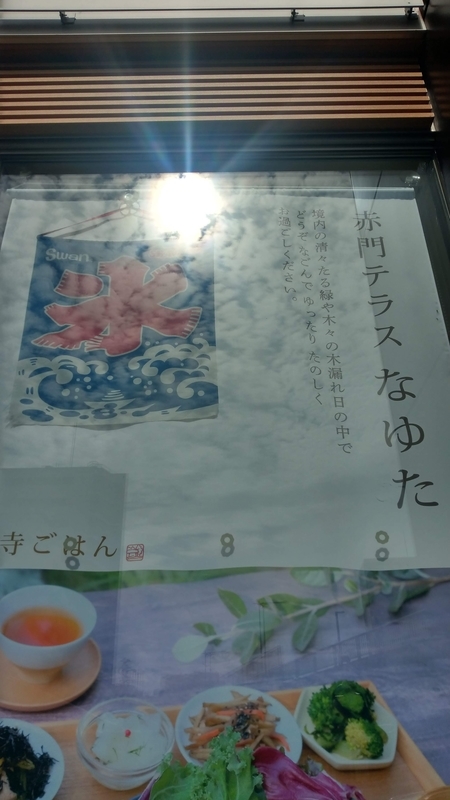 赤門テラス なゆた
境内の清々たる緑や木々の木漏れ日の中で
どうぞなごんで ゆったり たのしく
お過ごしください。
Swan
氷
寺ごはん